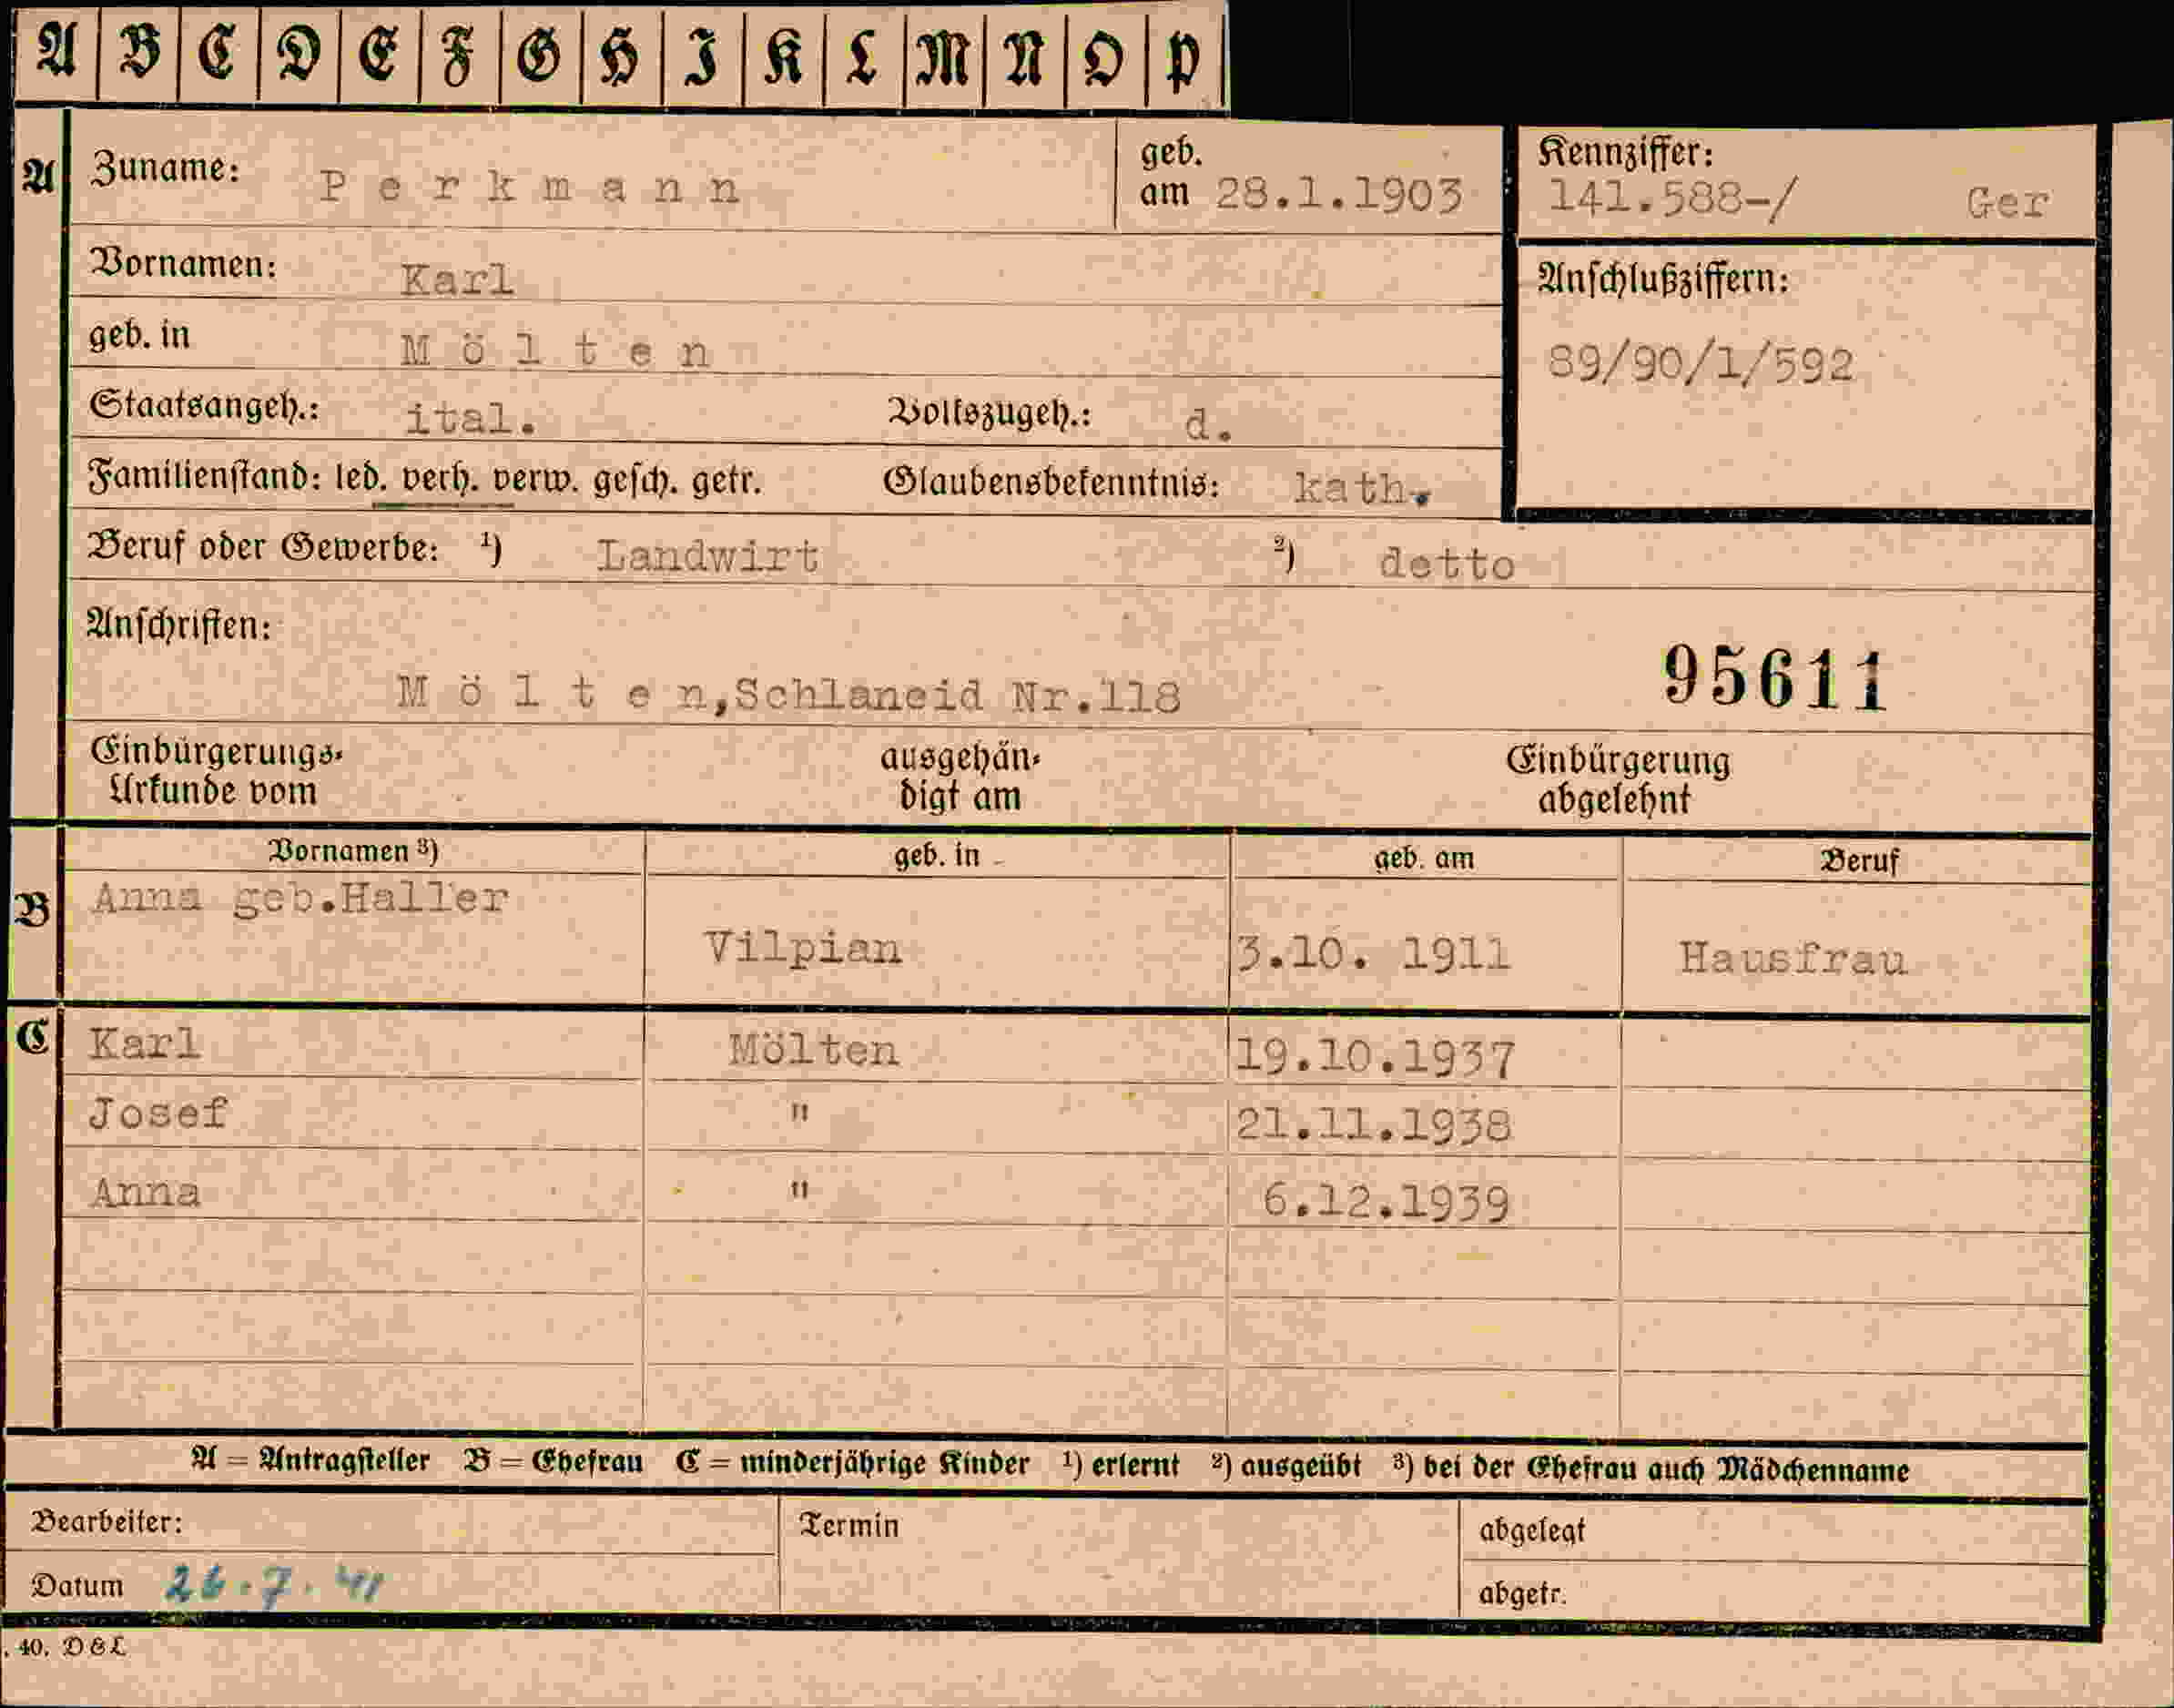 A B C D E F G H I K L M N O P
A Zuname: Perkmann geb. am 28.1.1903 Kennziffer: 141.588-/ Ger
Vornamen: Karl Anschlußziffern:
geb. in Mölten 89/90/1/592
Staatsangeh.: ital. Volkszugeh.: d.
Familienstand: led. verh. verw. gesch. getr. Glaubensbekenntnis: kath.
Beruf oder Gewerbe: ¹) Landwirt ²) detto
Anschriften:
Mölten,Schlaneid Nr.118 95611
Einbürgerungs- ausgehän- Einbürgerung
Urkunde vom digt am abgelehnt
Vornamen ³) geb. in geb. am Beruf
B Anna geb.Haller
Vilpian 3.10. 1911 Hausfrau
C Karl Mölten 19.10.1937
Josef " 21.11.1938
Anna " 6.12.1939
A = Antragsteller B = Ehefrau C = minderjährige Kinder ¹) erlernt ²) ausgeübt ³) bei der Ehefrau auch Mädchenname
Bearbeiter: Termin abgelegt
Datum 26.7.41 abgetr.
. 40. D&L